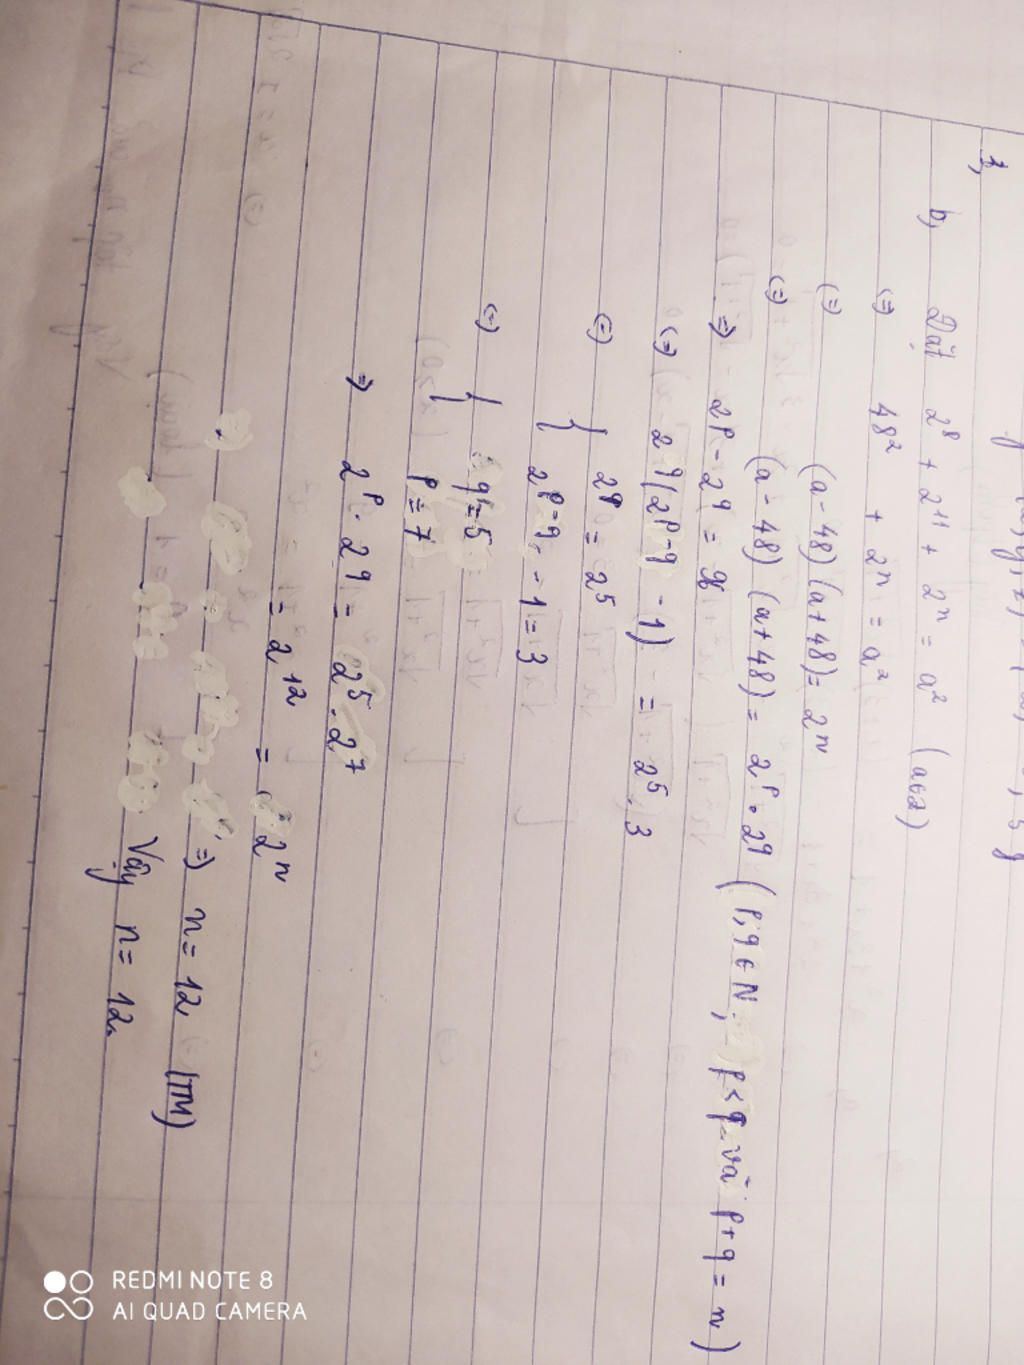 1,
b, Đặt 2⁸ + 2¹¹ + 2ⁿ = a² (a∈Z)
(=) 48² + 2ⁿ = a²
(=) (a - 48) (a + 48) = 2ⁿ
(=) (a - 48) (a + 48) = 2ᵖ . 2^q (p, q ∈ N, p < q và p + q = n)
=) 2ᵖ - 2^q = 96
(=) 2^q (2^p-q - 1) = 2⁵ . 3
(=) { 2^q = 2⁵
2^p-q - 1 = 3
(=) { q = 5
p = 7
=) 2ᵖ . 2^q = 2⁵ . 2⁷
= 2¹² = 2ⁿ
=) n = 12 (TM)
Vậy n = 12.
REDMI NOTE 8
AI QUAD CAMERA